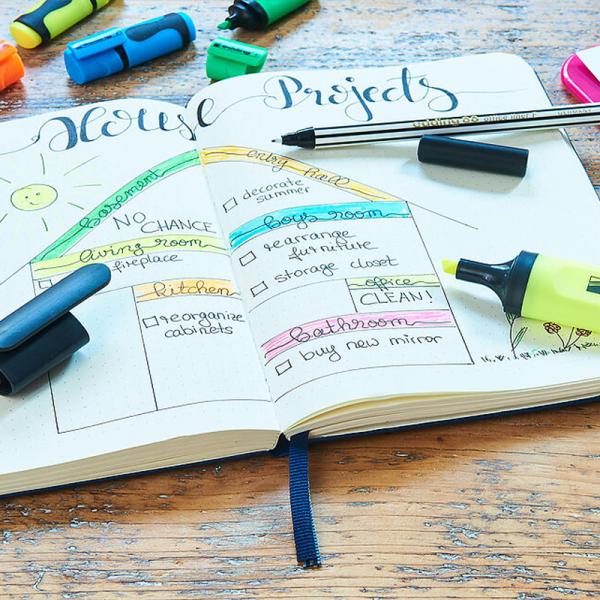 House Projects
basement
NO
CHANCE
living room
fireplace
kitchen
reorganize
cabinets
entry hall
decorate
summer
boys room
rearrange
furniture
storage closet
office
CLEAN!
bathroom
buy new mirror
edding